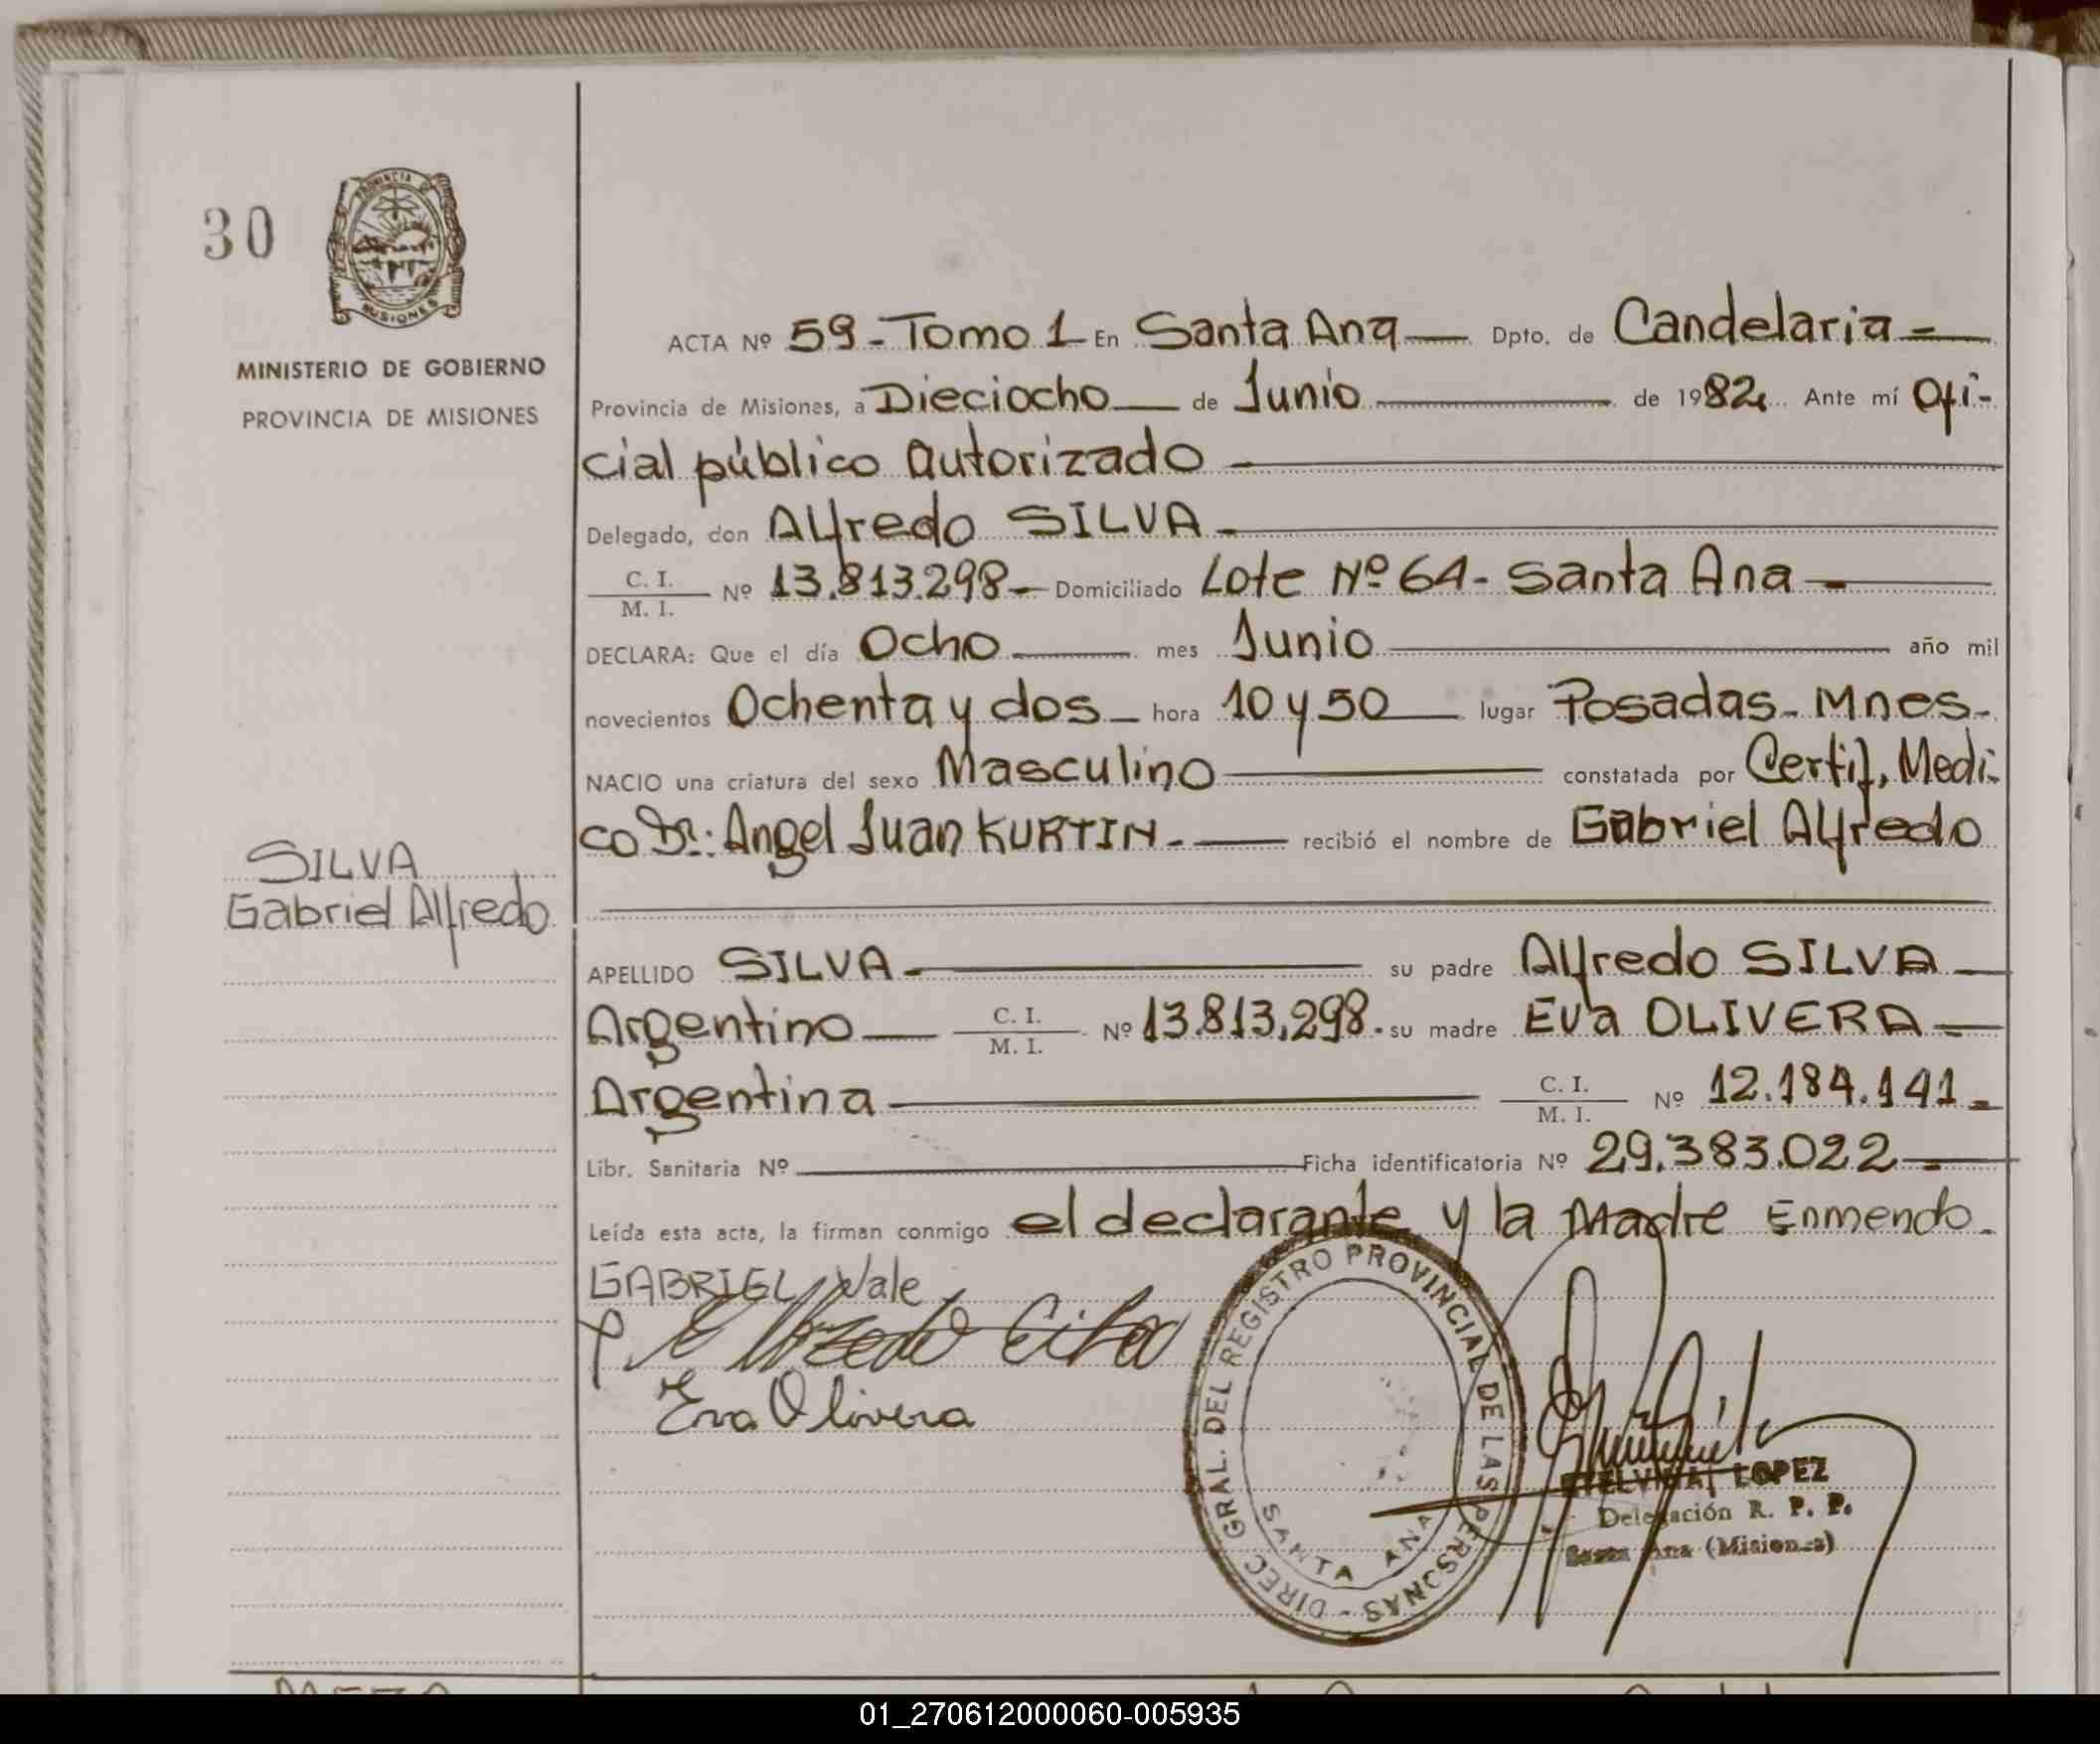 30
PROVINCIA DE
MISIONES
MINISTERIO DE GOBIERNO
PROVINCIA DE MISIONES
SILVA
Gabriel Alfredo
ACTA Nº 59 - Tomo 1 En Santa Ana Dpto. de Candelaria
Provincia de Misiones, a Dieciocho de Junio de 1982 Ante mí Ofi-
cial público autorizado
Delegado, don Alfredo SILVA
C. I. / M. I. Nº 13.813.298 Domiciliado Lote Nº 64 - Santa Ana
DECLARA: Que el día Ocho mes Junio año mil
novecientos Ochenta y dos hora 10 y 50 lugar Posadas - Mnes -
NACIO una criatura del sexo Masculino constatada por Certif. Medi-
co Dr.: Angel Juan KURTIN recibió el nombre de Gabriel Alfredo
APELLIDO SILVA su padre Alfredo SILVA
Argentino C. I. / M. I. Nº 13.813.298. su madre Eva OLIVERA
Argentina C. I. / M. I. Nº 12.184.141
Libr. Sanitaria Nº Ficha identificatoria Nº 29.383.022
Leída esta acta, la firman conmigo el declarante y la Madre Enmendo
GABRIEL Vale
Alfredo Silva
Eva Olivera
DIREC GRAL. DEL REGISTRO PROVINCIAL DE LAS PERSONAS -
SANTA ANA
LOPEZ
Delegación R. P. P.
Santa Ana (Misiones)
01_270612000060-005935